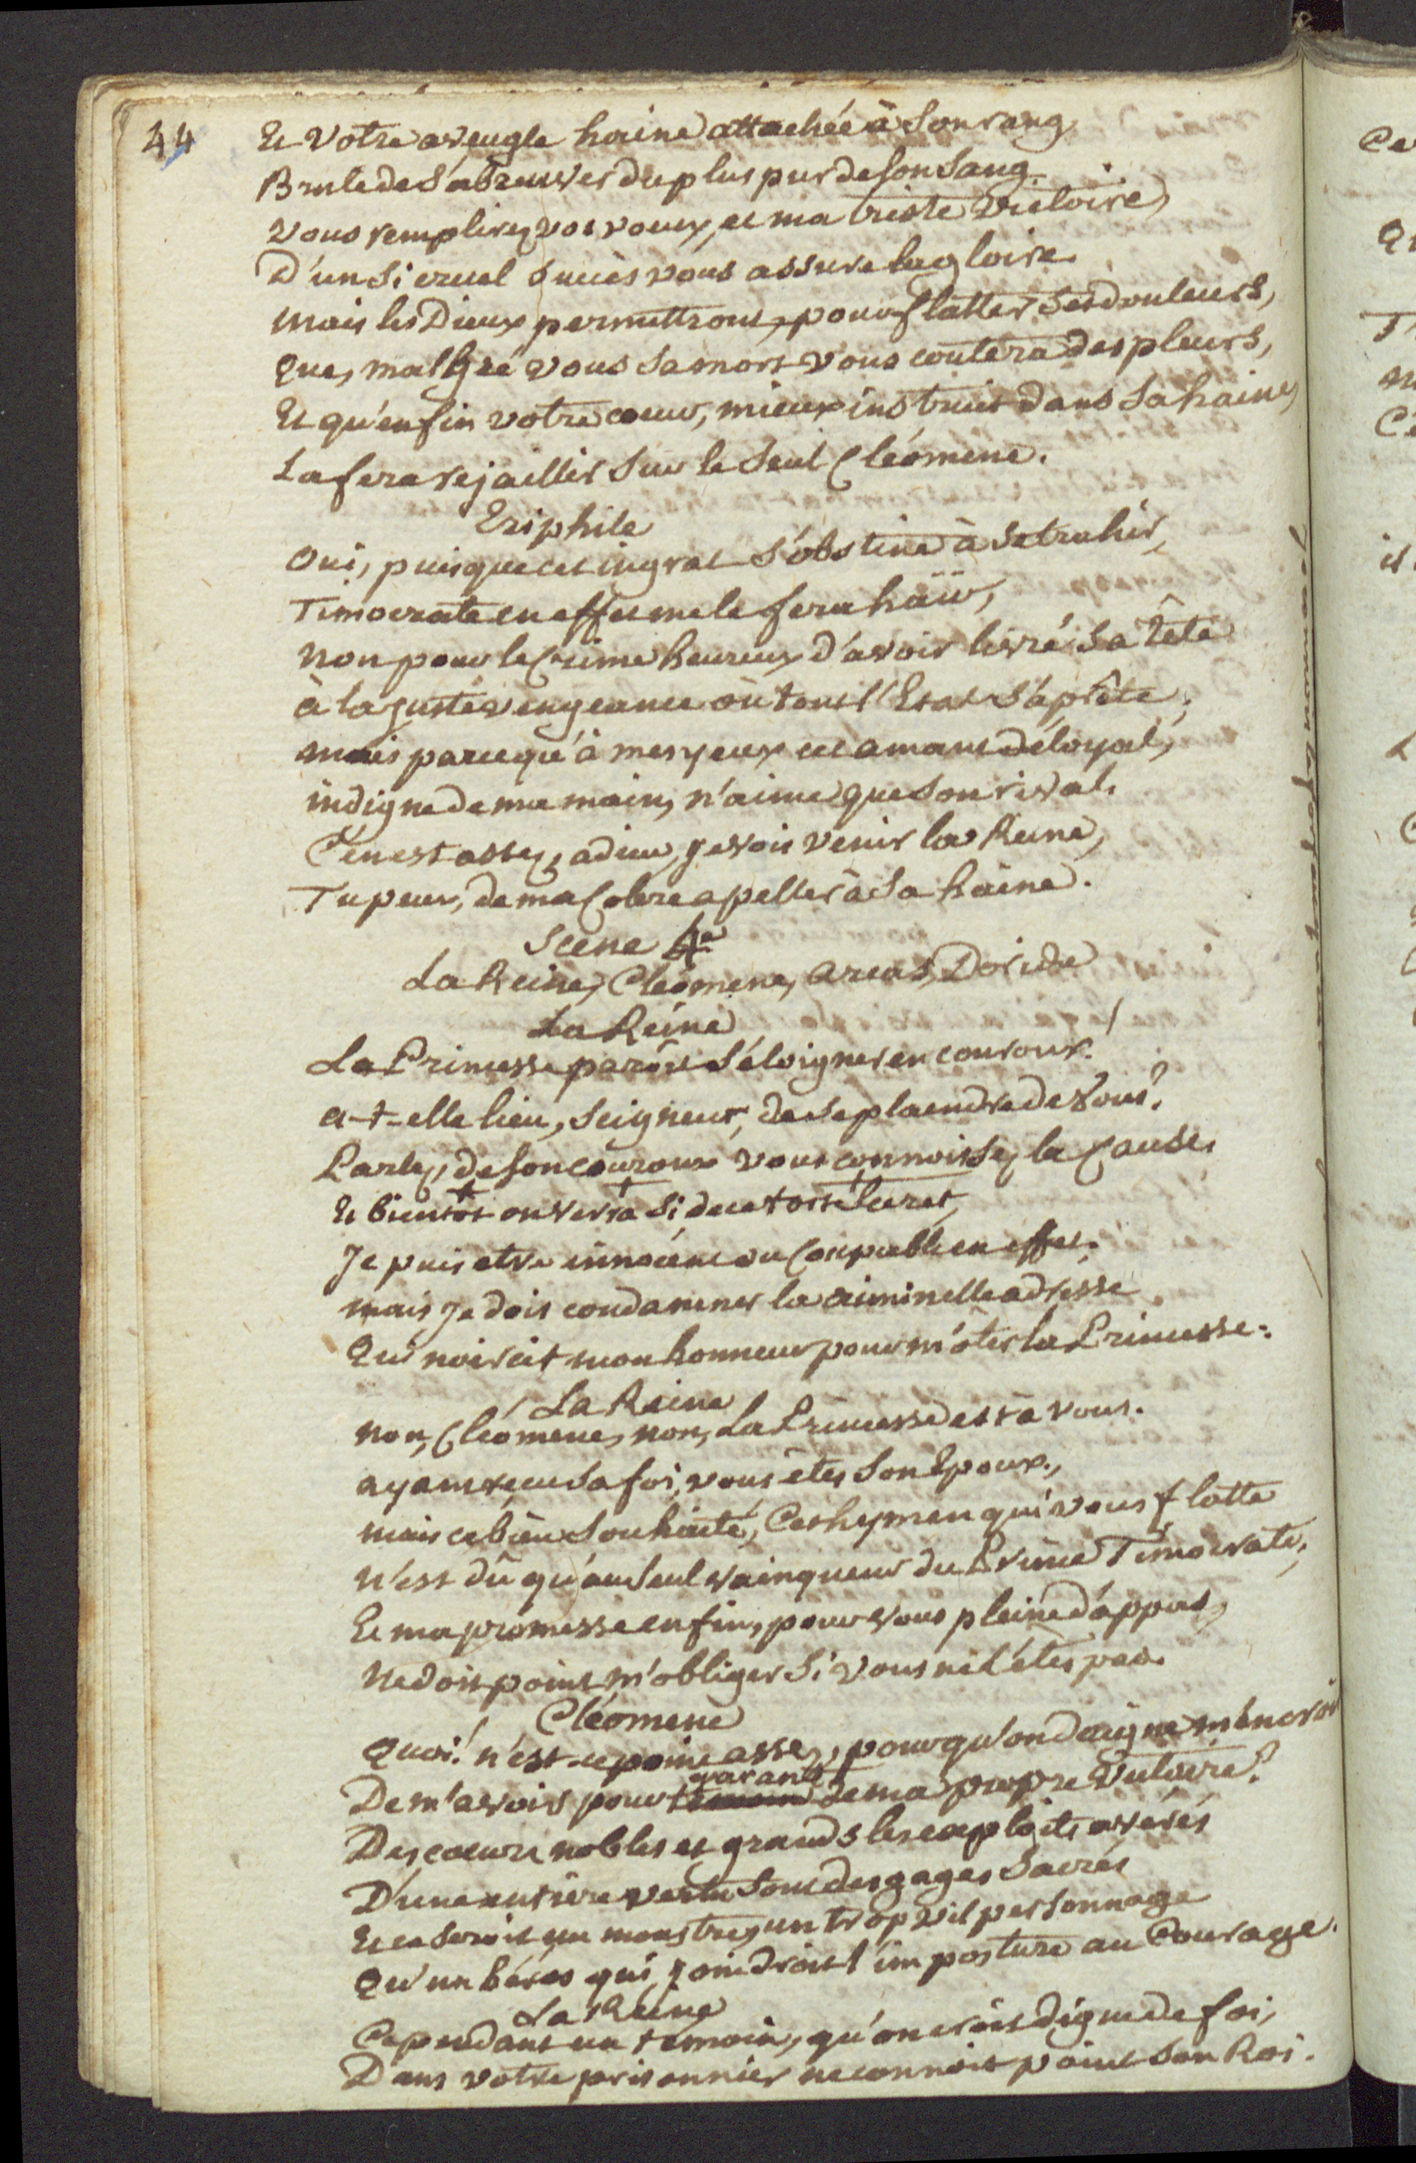 44
Et votre aveugle haine attachée à son rang
Brule de s'abreuver du plus pur de son sang.
vous remplirez vos voeux, et ma triste victoire,
D'un si cruel succès vous assure la gloire.
mais les Dieux permettront, pour flatter ses douleurs,
que, malgré vous sa mort vous coutera des pleurs,
Et qu'enfin votre coeur, mieux instruit dans sa haine,
La fera rejaillir sur le seul Cléomene.
Eriphile
Oui, puisque cet ingrat s'obstine à se trahir,
Timocrate en effet me le fera haïr,
non pour le Crime heureux d'avoir livré sa tête
à la juste vengeance où tout l'Etat s'aprête;
mais parcequ'à mes yeux cet amant déloyal,
indigne de ma main, n'aime que son rival.
C'en est assez, adieu, je vois venir la Reine,
Tu peux, de ma Colere apeller à sa haine.
Scene 4e
La Reine, Cléomene, Arcas, Doride
La Reine
La Princesse paroit s'éloigner en couroux!
a-t-elle lieu, Seigneur, de se plaindre de vous?
Parlez, de son couroux vous connoissez la Cause.
Et bientôt on verra si de ce fort secret,
Je puis etre innocent ou Coupable en effet.
mais Je dois condamner la criminelle adresse
Qui noircit mon honneur pour m'ôter la Princesse.
La Reine
non, Cléomene, non, La Princesse est à vous.
ayant recu sa foi, vous êtes son Epoux.,
mais ce bien souhaité, Cet hymen qui vous flatte
n'est dû qu'au seul vainqueur du Prince Timocrate,
Et ma promesse enfin, pour vous pleine d'appas,
ne doit point m'obliger si vous ne l'êtes pas.
Cléomene
Quoi! n'est-ce point assez, pour qu'on daigne m'en croire
garant
De m'avoir pour temoin de ma propre Victoire?
Des coeurs nobles et grands les exploits averés
D'une entiere vertu sont des gages sacrés
Et ce seroit un monstre, un trop vil personnage
Qu'un héros qui joindroit l'imposture au Courage.
La Reine
Cependant un temoin, qu'on croit digne de foi,
Dans votre prisonnier ne connoit point son Roi.